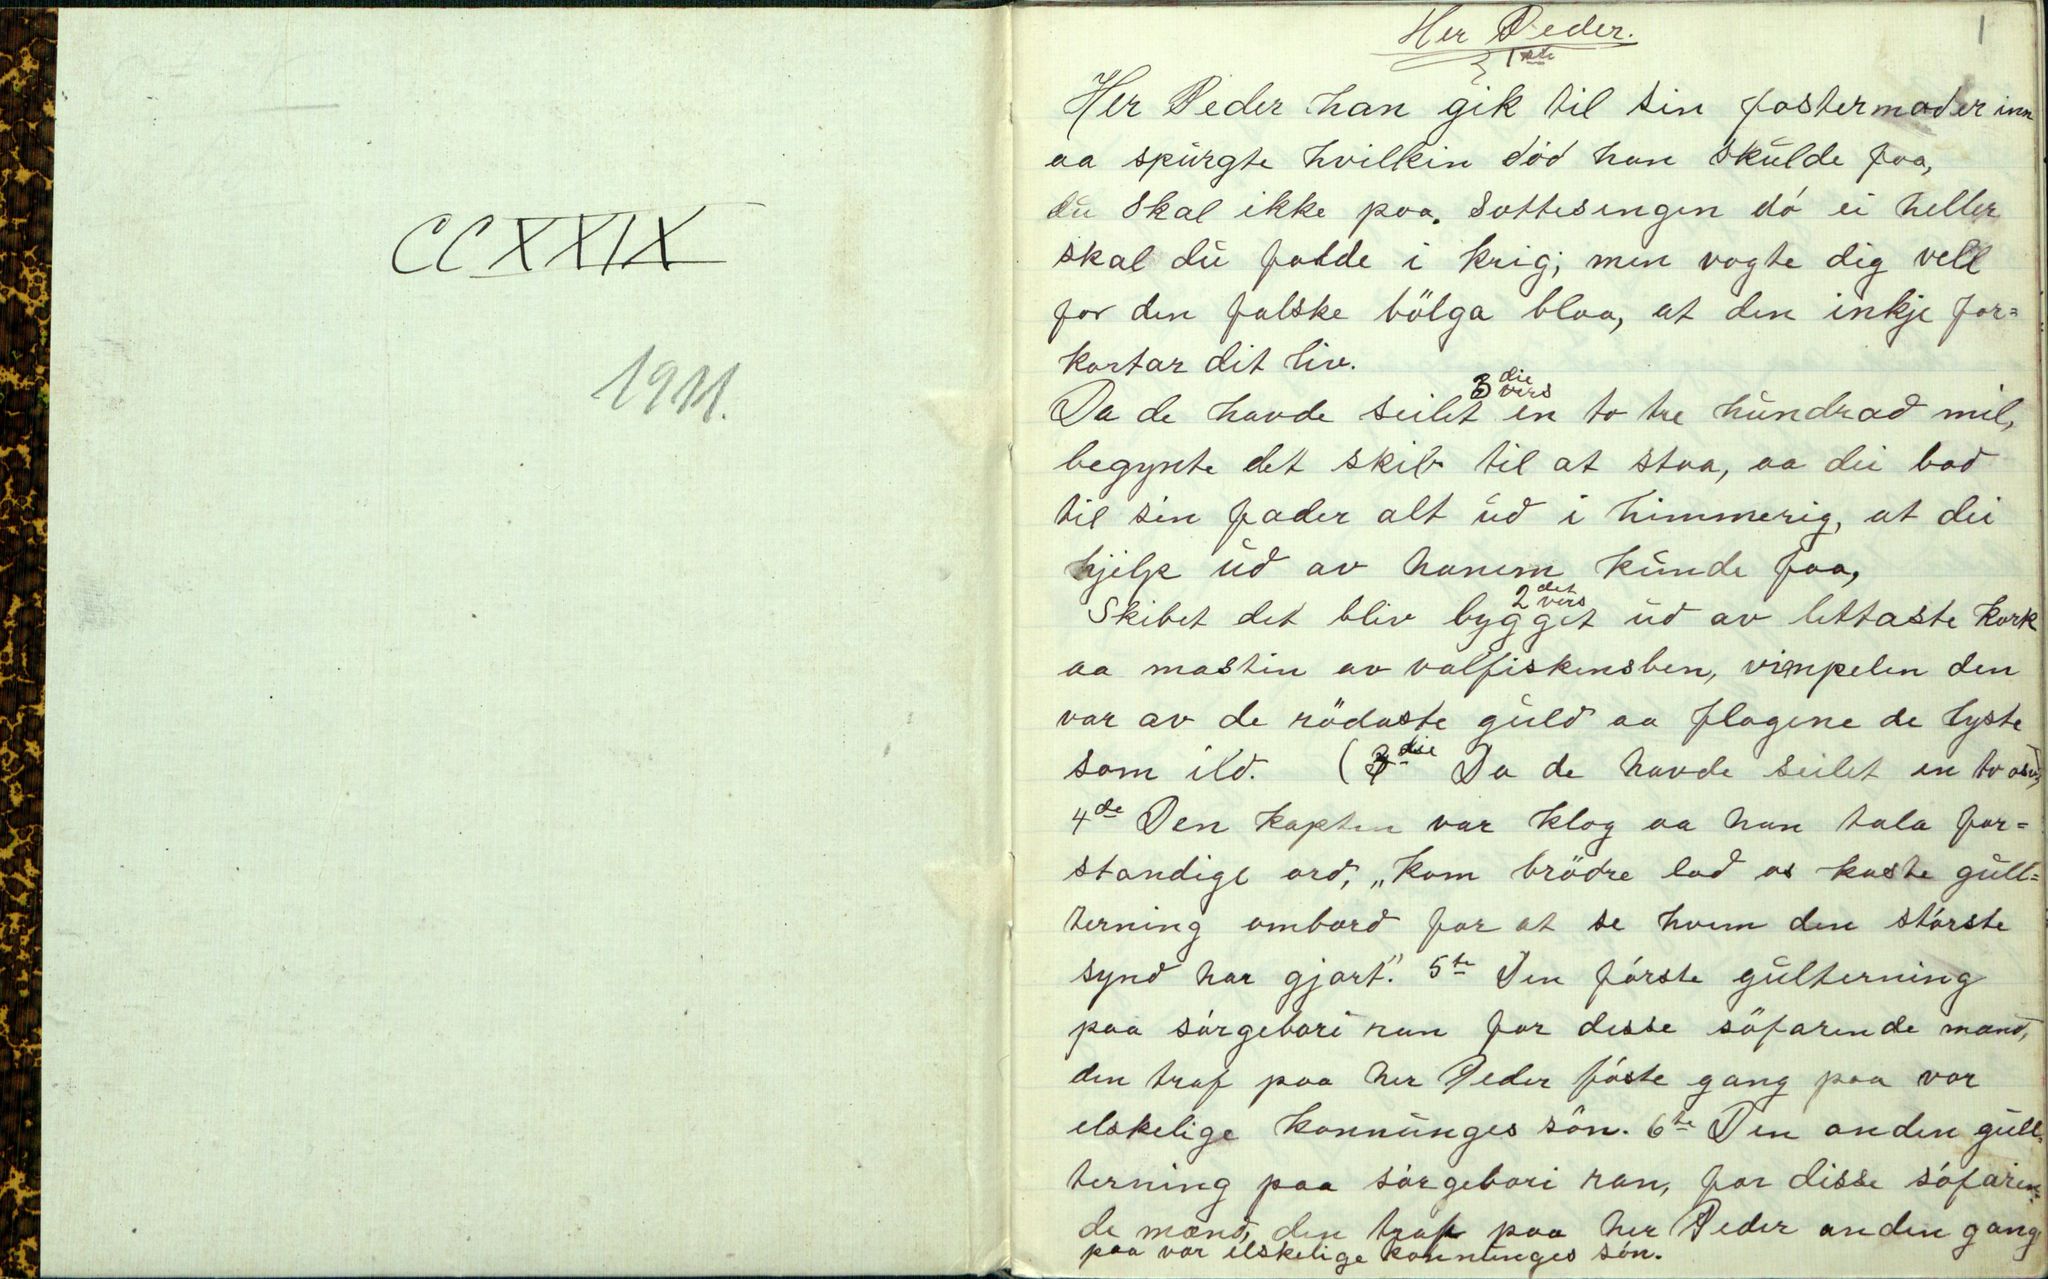 CCXXIX
1911.
1
Her Peder.
1ste
Her Peder han gik til sin fostermoder inn
aa spurgte hvilkin död han skulde faa,
du skal ikke paa. sottesengen dö ei heller
skal du falde i krig; men vogte dig vell
for den falske bölga blaa, at den inkje for=
kortar dit liv.
3die vers
Da de havde seilet en to tre hundrad mil,
begynte det skib til at staa, aa dei bad
til sin fader alt ud i himmerig, at dei
hjelp ud av hanem kunde faa,
2det vers
Skibet det bliv bygget ud av lettaste kork
aa mastin av valfiskensben, vimpelen den
var av de rödaste guld aa flagene de lyste
som ild. (3die Da de havde seilet en to osv,
4de Den kapten var klog aa han tala for=
standige ord, „Kom brödre lad os kaste gull=
terning ombord for at se hvem den störste
synd har gjort." 5te Den förste gulterning
paa sörgebori ran for desse söfarende mand,
den traf paa her Peder föste gang paa vor
elskelige konnunges sön. 6te Den anden gull=
terning paa sörgebori ran, for disse söfaren=
de mænd, den traf paa her Peder anden gang
paa vor elskelige konnunges sön.